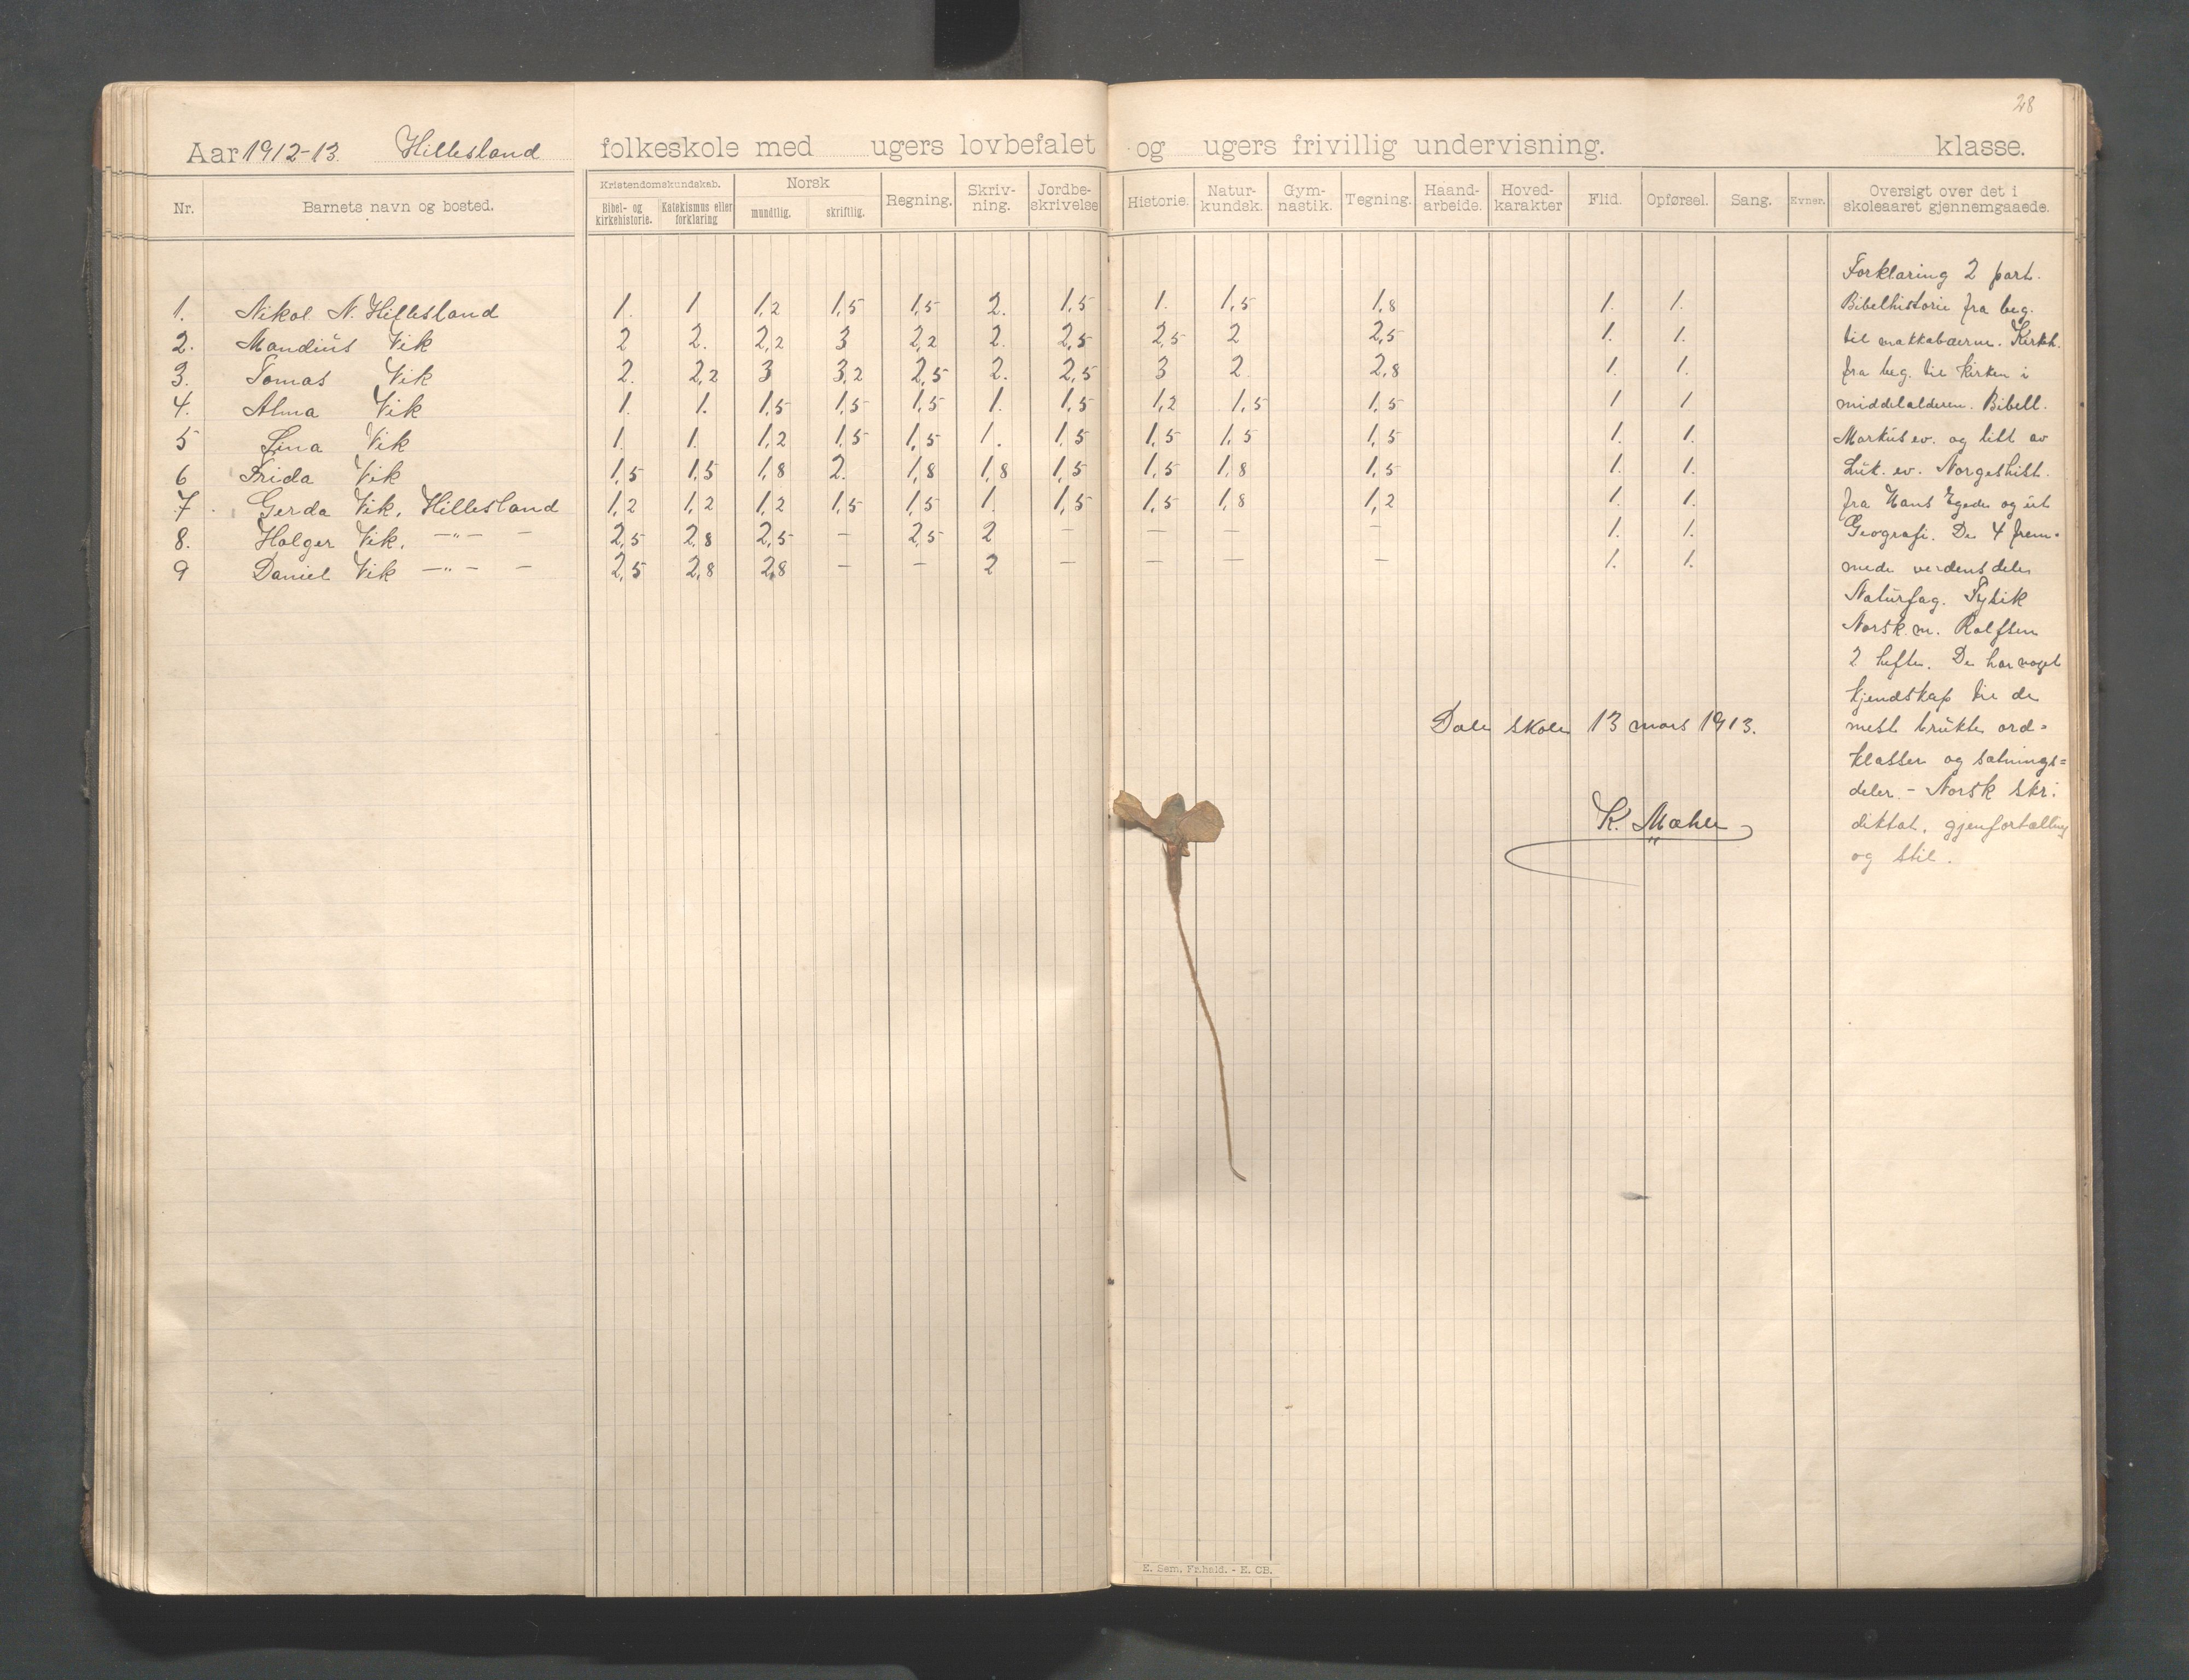 28
Aar 1912-13. Hillesland folkeskole med ugers lovbefalet og ugers frivillig undervisning. klasse.
Nr. Barnets navn og bosted. Kristendomskundskab. Bibel- og kirkehistorie. Katekismus eller forklaring Norsk mundtlig. skriftlig. Regning. Skriv-ning. Jordbe-skrivelse Historie. Natur-kundsk. Gym-nastik. Tegning. Haand-arbeide. Hoved-karakter Flid. Opførsel. Sang. Evner. Oversigt over det i skoleaaret gjennemgaaede.
1. Nikol. N. Hillesland 1. 1 1,2 1,5 1,5 2. 1,5 1. 1,5 1,8 1. 1.
2. Mandius Vik 2 2. 2,2 3 2,2 2. 2,5 2,5 2 2,5 1. 1.
3. Tomas Vik 2. 2,2 3 3,2 2,5 2. 2,5 3 2 2,8 1. 1.
4. Alma Vik 1. 1. 1,5 1,5 1,5 1. 1,5 1,2 1,5 1,5 1 1
5 Lina Vik 1. 1. 1,2 1,5 1,5 1. 1,5 1,5 1,5 1,5 1. 1.
6 Frida Vik 1,5 1,5 1,8 2. 1,8 1,8 1,5 1,5 1,8 1,5 1. 1.
7. Gerda Vik, Hillesland 1,2 1,2 1,2 1,5 1,5 1. 1,5 1,5 1,8 1,2 1. 1.
8. Holger Vik. —„— — 2,5 2,8 2,5 — 2,5 2 — — — — 1. 1.
9 Daniel Vik —„— — 2,5 2,8 2,8 — — 2 — — — — 1. 1.
Forklaring 2 part.
Bibelhistorie fra beg.
til makkabæerne. Kirkh.
fra beg. til kirken i
middelalderen. Bibell.
Markus ev. og litt av
Luk. ev. Norgeshist.
fra Hans Egede og ut
Geografi. De 4 frem-
mede verdensdele
Naturfag. Fysik
Norsk. m. Rolfsen
2 hefte. De har noget
kjendskap til de
mest brukte ord=
klasser og sætnings=
deler. - Norsk skr:
diktat, gjenfortælling
og stil.
Dale skole 13 mars 1913.
K. Mæhle
E. Sem, Fr.hald. - E. CB.